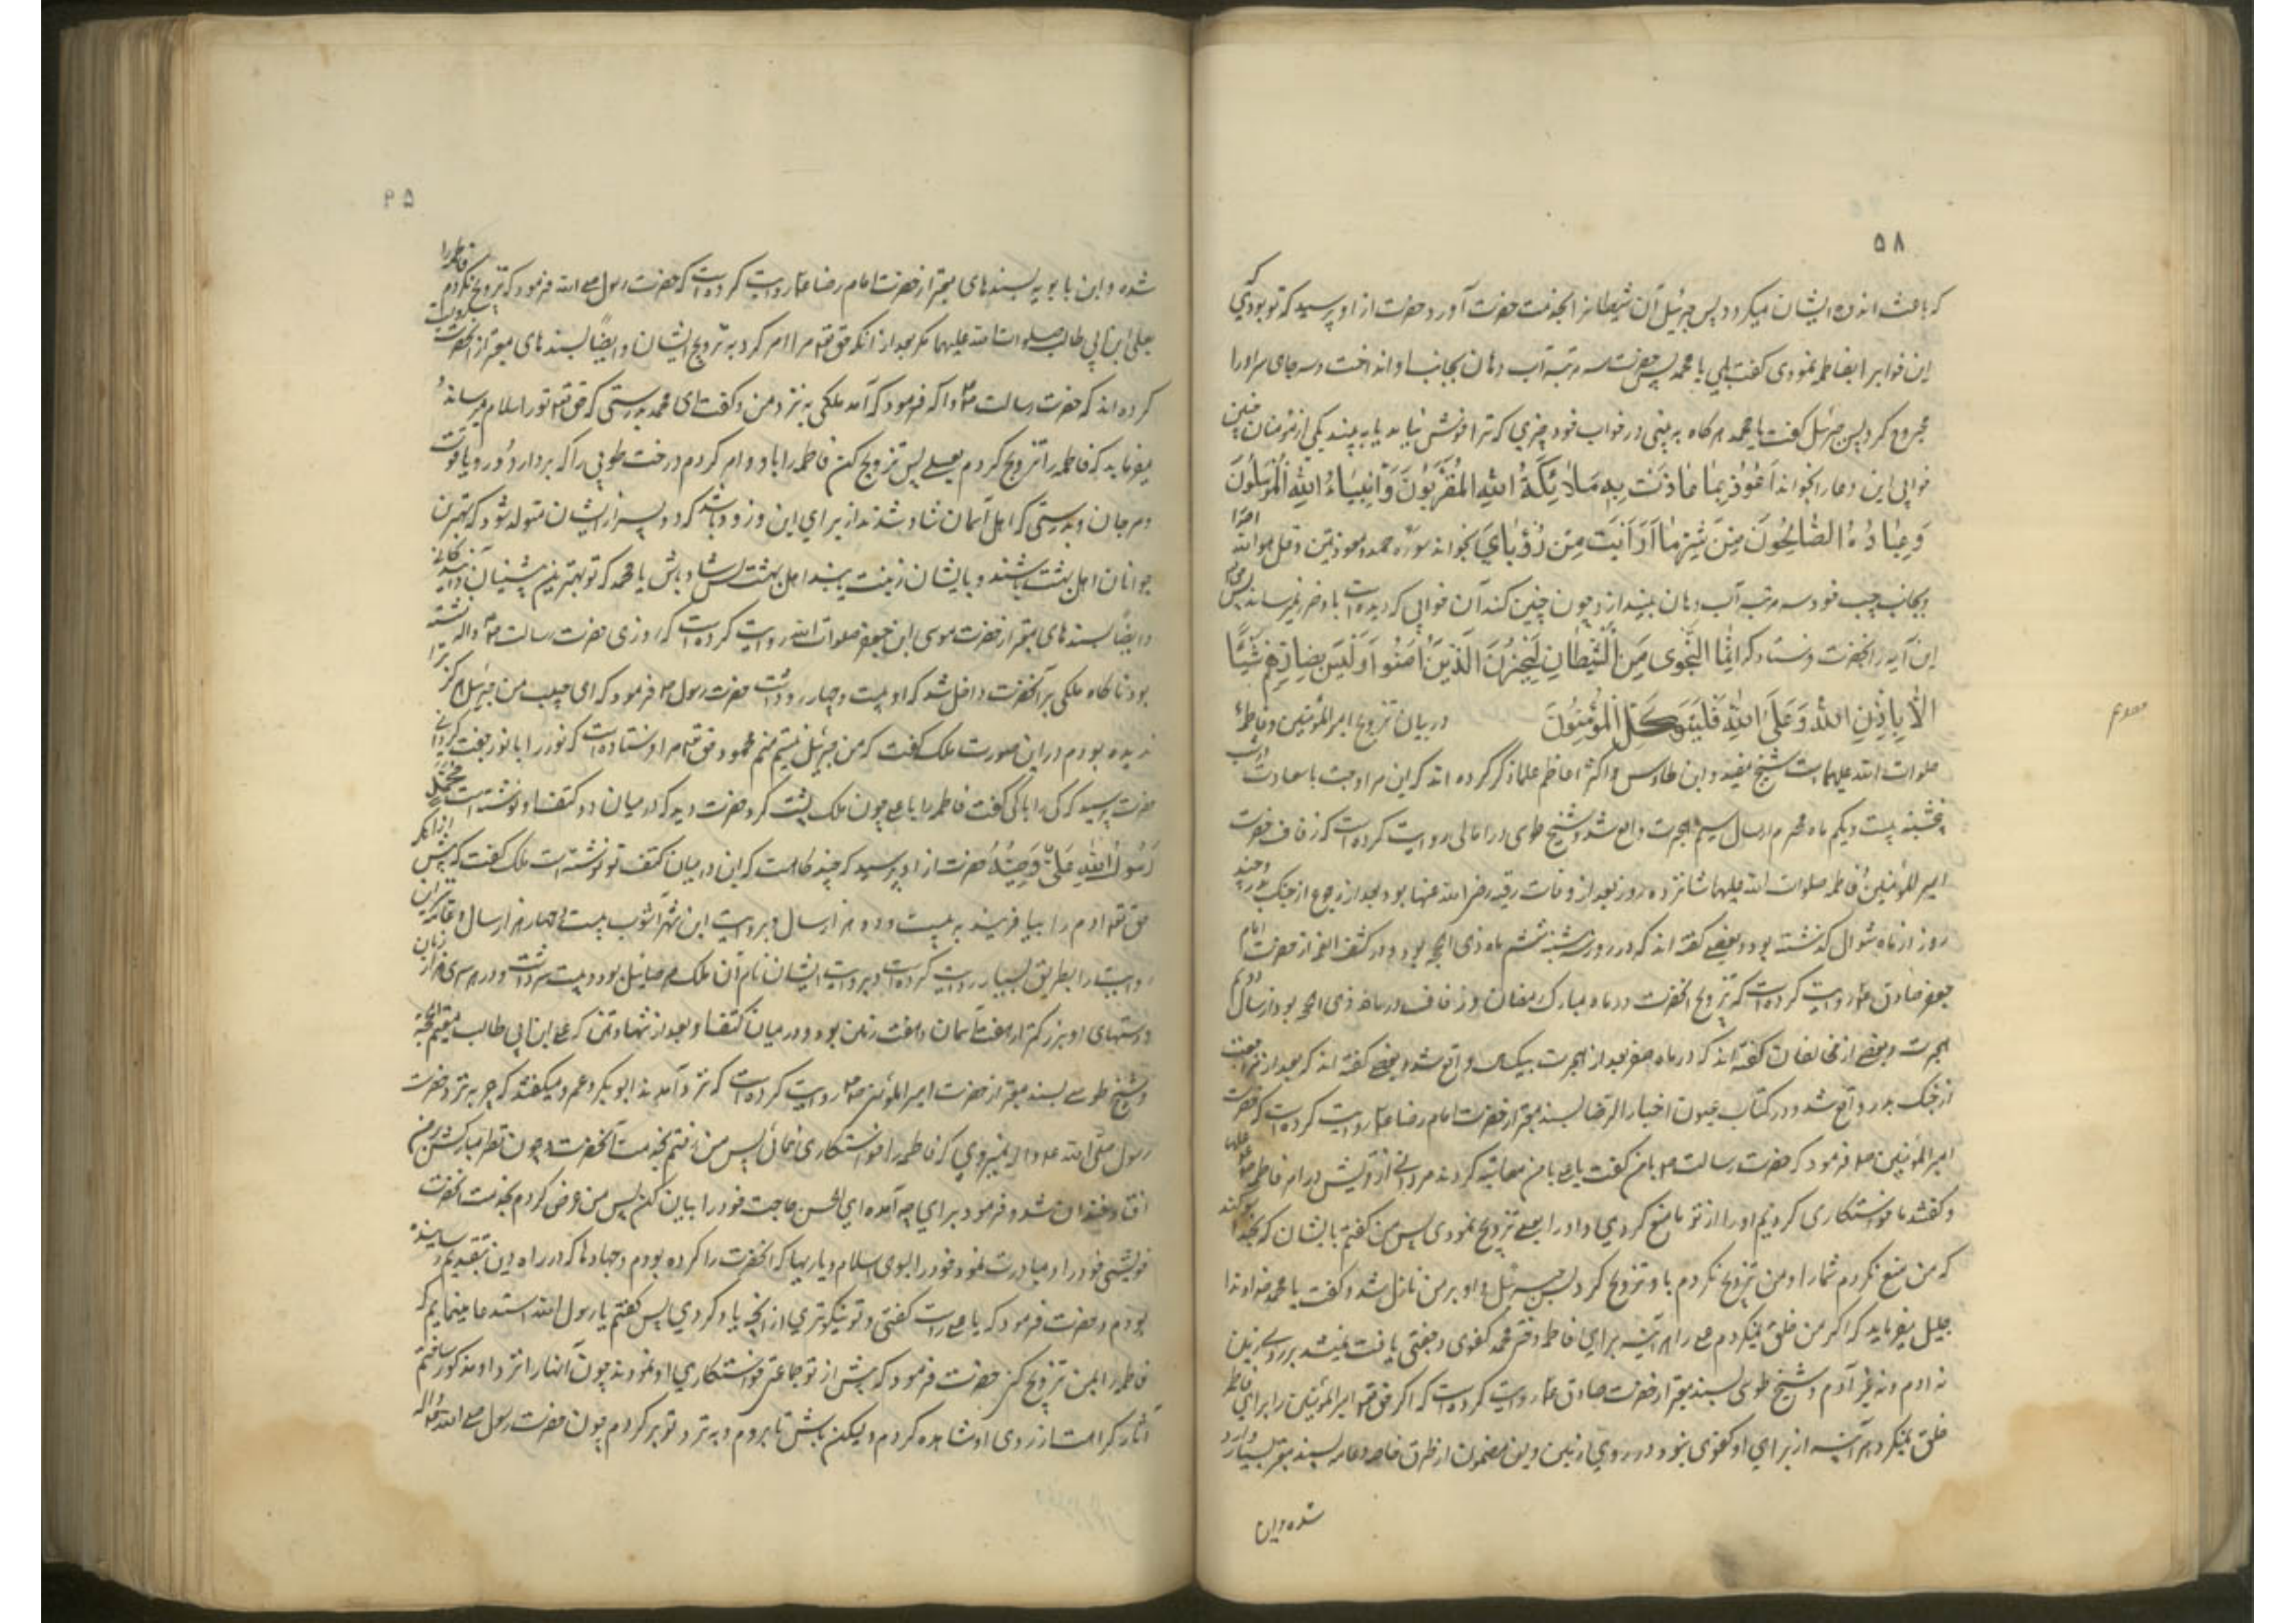 ۵۸
که باعث اندوه ایشان میگردد پس جبرئیل آن شیطانرا بخدمت حضرت آورد و حضرت از او پرسید که تو بودی که
این خوابرا بفاطمه نمودی گفت بلی یا محمد پس حضرت سه مرتبه آب دهان بجانب او انداخت و سه جای سر او را
مجروح کرد پس جبرئیل گفت یا محمد هرگاه به بینی در خواب خود چیزی که ترا خوش نیاید یا به بیند یکی از مؤمنان چنین
خوابی این دعا را بخواند اَعُوذُ بِمَا عَاذَتْ بِهِ مَلَائِكَةُ اللهِ الْمُقَرَّبُونَ وَ اَنْبِيَاءُ اللهِ الْمُرْسَلُونَ
وَ عِبَادُهُ الصَّالِحُونَ مِنْ شَرِّ مَا رَأَيْتُ مِنْ رُؤْيَايَ بخواند سوره حمد و معوذتین و قل هو الله احد را
و بجانب چپ خود سه مرتبه آب دهان بیندازد چون چنین کند آن خوابی که دیده است باو ضرر نمیرساند پس حق تعالی
این آیه را بحضرت فرستاد که اِنَّمَا النَّجْوَى مِنَ الشَّيْطَانِ لِيَحْزُنَ الَّذِينَ آمَنُوا وَ لَيْسَ بِضَارِّهِمْ شَيْئًا
اِلَّا بِاِذْنِ اللهِ وَ عَلَى اللهِ فَلْيَتَوَكَّلِ الْمُؤْمِنُونَ در بیان تزویج امیر المؤمنین و فاطمه
صلوات الله علیهما است شیخ مفید و ابن طاوس و اکثر اعاظم علما ذکر کرده اند که این مزاوجت با سعادت در شب
پنجشنبه بیست و یکم ماه محرم از سال سیم هجرت واقع شد و شیخ طوسی در امالی روایت کرده است که زفاف حضرت
امیر المؤمنین و فاطمه صلوات الله علیهما شانزده روز بعد از وفات رقیه رضی الله عنها بود بعد از رجوع از جنک بدر و چند
روز از ماه شوال گذشته بود و بعضی گفته اند که در روز سه شنبه ششم ماه ذی الحجه بود و در کشف الغمه از حضرت امام
جعفر صادق ع روایت کرده است که تزویج آنحضرت در ماه مبارک رمضان و زفاف در ماه ذی الحجه بود از سال دویم
هجرت و بعضی از مخالفان گفته اند که در ماه صفر بعد از هجرت بیکسال واقع شد و بعضی گفته اند که بعد از مراجعت
از جنک بدر واقع شد و در کتاب عیون اخبار الرضا بسند معتبر از حضرت امام رضا ع روایت کرده است که حضرت
امیر المؤمنین ص فرمود که حضرت رسالت ص بامن گفت یا علی بامن معاتبه کردند مردانی از قریش در امر فاطمه
و گفتند ما خواستکاری کردیم او را از تو ما منع کردی و او را بعلی تزویج نمودی پس من گفتم بایشان که بخدا سوگند
که من منع نکردم شما را و من تزویج نکردم باو تزویج کرد پس جبرئیل بر من نازل شد و گفت یا محمد خداوند
جلیل میفرماید که اگر من خلق نمیکردم علی را هر آینه برای فاطمه دختر محمد کفوی و جفتی یافت نمیشد بر روی زمین
نه آدم و نه غیر آدم و شیخ طوسی بسند معتبر از حضرت صادق ع روایت کرده است که اگر حق تعالی امیر المؤمنین را برای فاطمه
خلق نمیکرد هر آینه از برای او کفوی نبود در روی زمین و این مضمون از طرق خاصه و عامه بسند معتبر بسیار وارد
شده و ابن
معصوم
۵۹
شده و ابن بابویه بسندهای معتبر از حضرت امام رضا ع روایت کرده است که حضرت رسول صلی الله فرمود که تزویج نکردم فاطمه را
بعلی ابن ابی طالب صلوات الله علیهما مگر بعد از آنکه حق تعالی مرا امر کرد به تزویج ایشان و ایضا بسندهای معتبر از آنحضرت روایت
کرده اند که حضرت رسالت ص و آله فرمود که آمد ملکی به نزد من و گفت ای محمد بدرستی که حق تعالی تو را سلام میرساند و
میفرماید که فاطمه را تزویج کردم بعلی پس تزویج کن فاطمه را باو و امر کردم درخت طوبی را که بردارد در و یاقوت
و مرجان و بدرستی که اهل آسمان شاد شدند از برای این و زود باشد که دو پسر از ایشان متولد شود که بهترین
جوانان اهل بهشت باشند و بایشان زینت یابند اهل بهشت پس شاد باش یا محمد که تو بهترین پیشینیان و آیندگانی
و ایضا بسندهای معتبر از حضرت موسی ابن جعفر صلوات الله روایت کرده است که روزی حضرت رسالت ص و آله نشسته
بود ناگاه ملکی بر آنحضرت داخل شد که او بیست و چهار رو داشت حضرت رسول ص فرمود که ای حبیب من جبرئیل هرگز ترا
ندیده بودم در این صورت ملک گفت که من جبرئیل نیستم منم محمود حق تعالی مرا فرستاده است که نور را با نور جفت گردانی
حضرت پرسید که کی را با کی گفت فاطمه را با علی چون ملک پشت کرد حضرت دید که در میان دو کتف او نوشته است مُحَمَّدٌ
رَسُولُ اللهِ عَلِيٌّ وَصِيُّهُ حضرت از او پرسید که چند گاه است که این در میان کتف تو نوشته است ملک گفت که پیش از آنکه
حق تعالی آدم را بیافریند به بیست و دو هزار سال و بروایت ابن شهر آشوب بیست و چهار هزار سال و عامه نیز این
روایت را بطریق بسیار روایت کرده اند و بروایت ایشان نام آن ملک صرصائیل بود و بیست سر داشت و در هر سری هزار زبان
و دستهای او بزرگتر از هفت آسمان و هفت زمین بود و در میان کتف او بعد از شهادتین که علی ابن ابی طالب مقیم الحجة
و شیخ طوسی بسند معتبر از حضرت امیر المؤمنین ص روایت کرده است که نزد من آمدند ابوبکر و عمر و میگفتند که چرا به نزد حضرت
رسول صلی الله علیه و آله نمیروی که فاطمه را خواستکاری نمائی پس من رفتم بخدمت آنحضرت چون نظر مبارکش بر من
افتاد خندان شد و فرمود برای چه آمده ای ابو الحسن حاجت خود را بیان کن پس من عرض کردم بخدمت آنحضرت
خویشی خود را و مبادرت نمودن خود را بسوی اسلام و یاریها که آنحضرت را کرده بودم و جهادها که در راه دین بتقدیم رسانیده
بودم و حضرت فرمود که یا علی راست گفتی و تو نیکوتری از آنچه یاد کردی پس گفتم یا رسول الله استدعا مینمایم که
فاطمه را بمن تزویج کنی حضرت فرمود که پیش از تو جماعتی خواستکاری او نمودند چون آنها را نزد او مذکور ساختم
آثار کراهت از روی او مشاهده کردم و لیکن باش تا بروم و به نزد تو برگردم چون حضرت رسول صلی الله علیه و آله